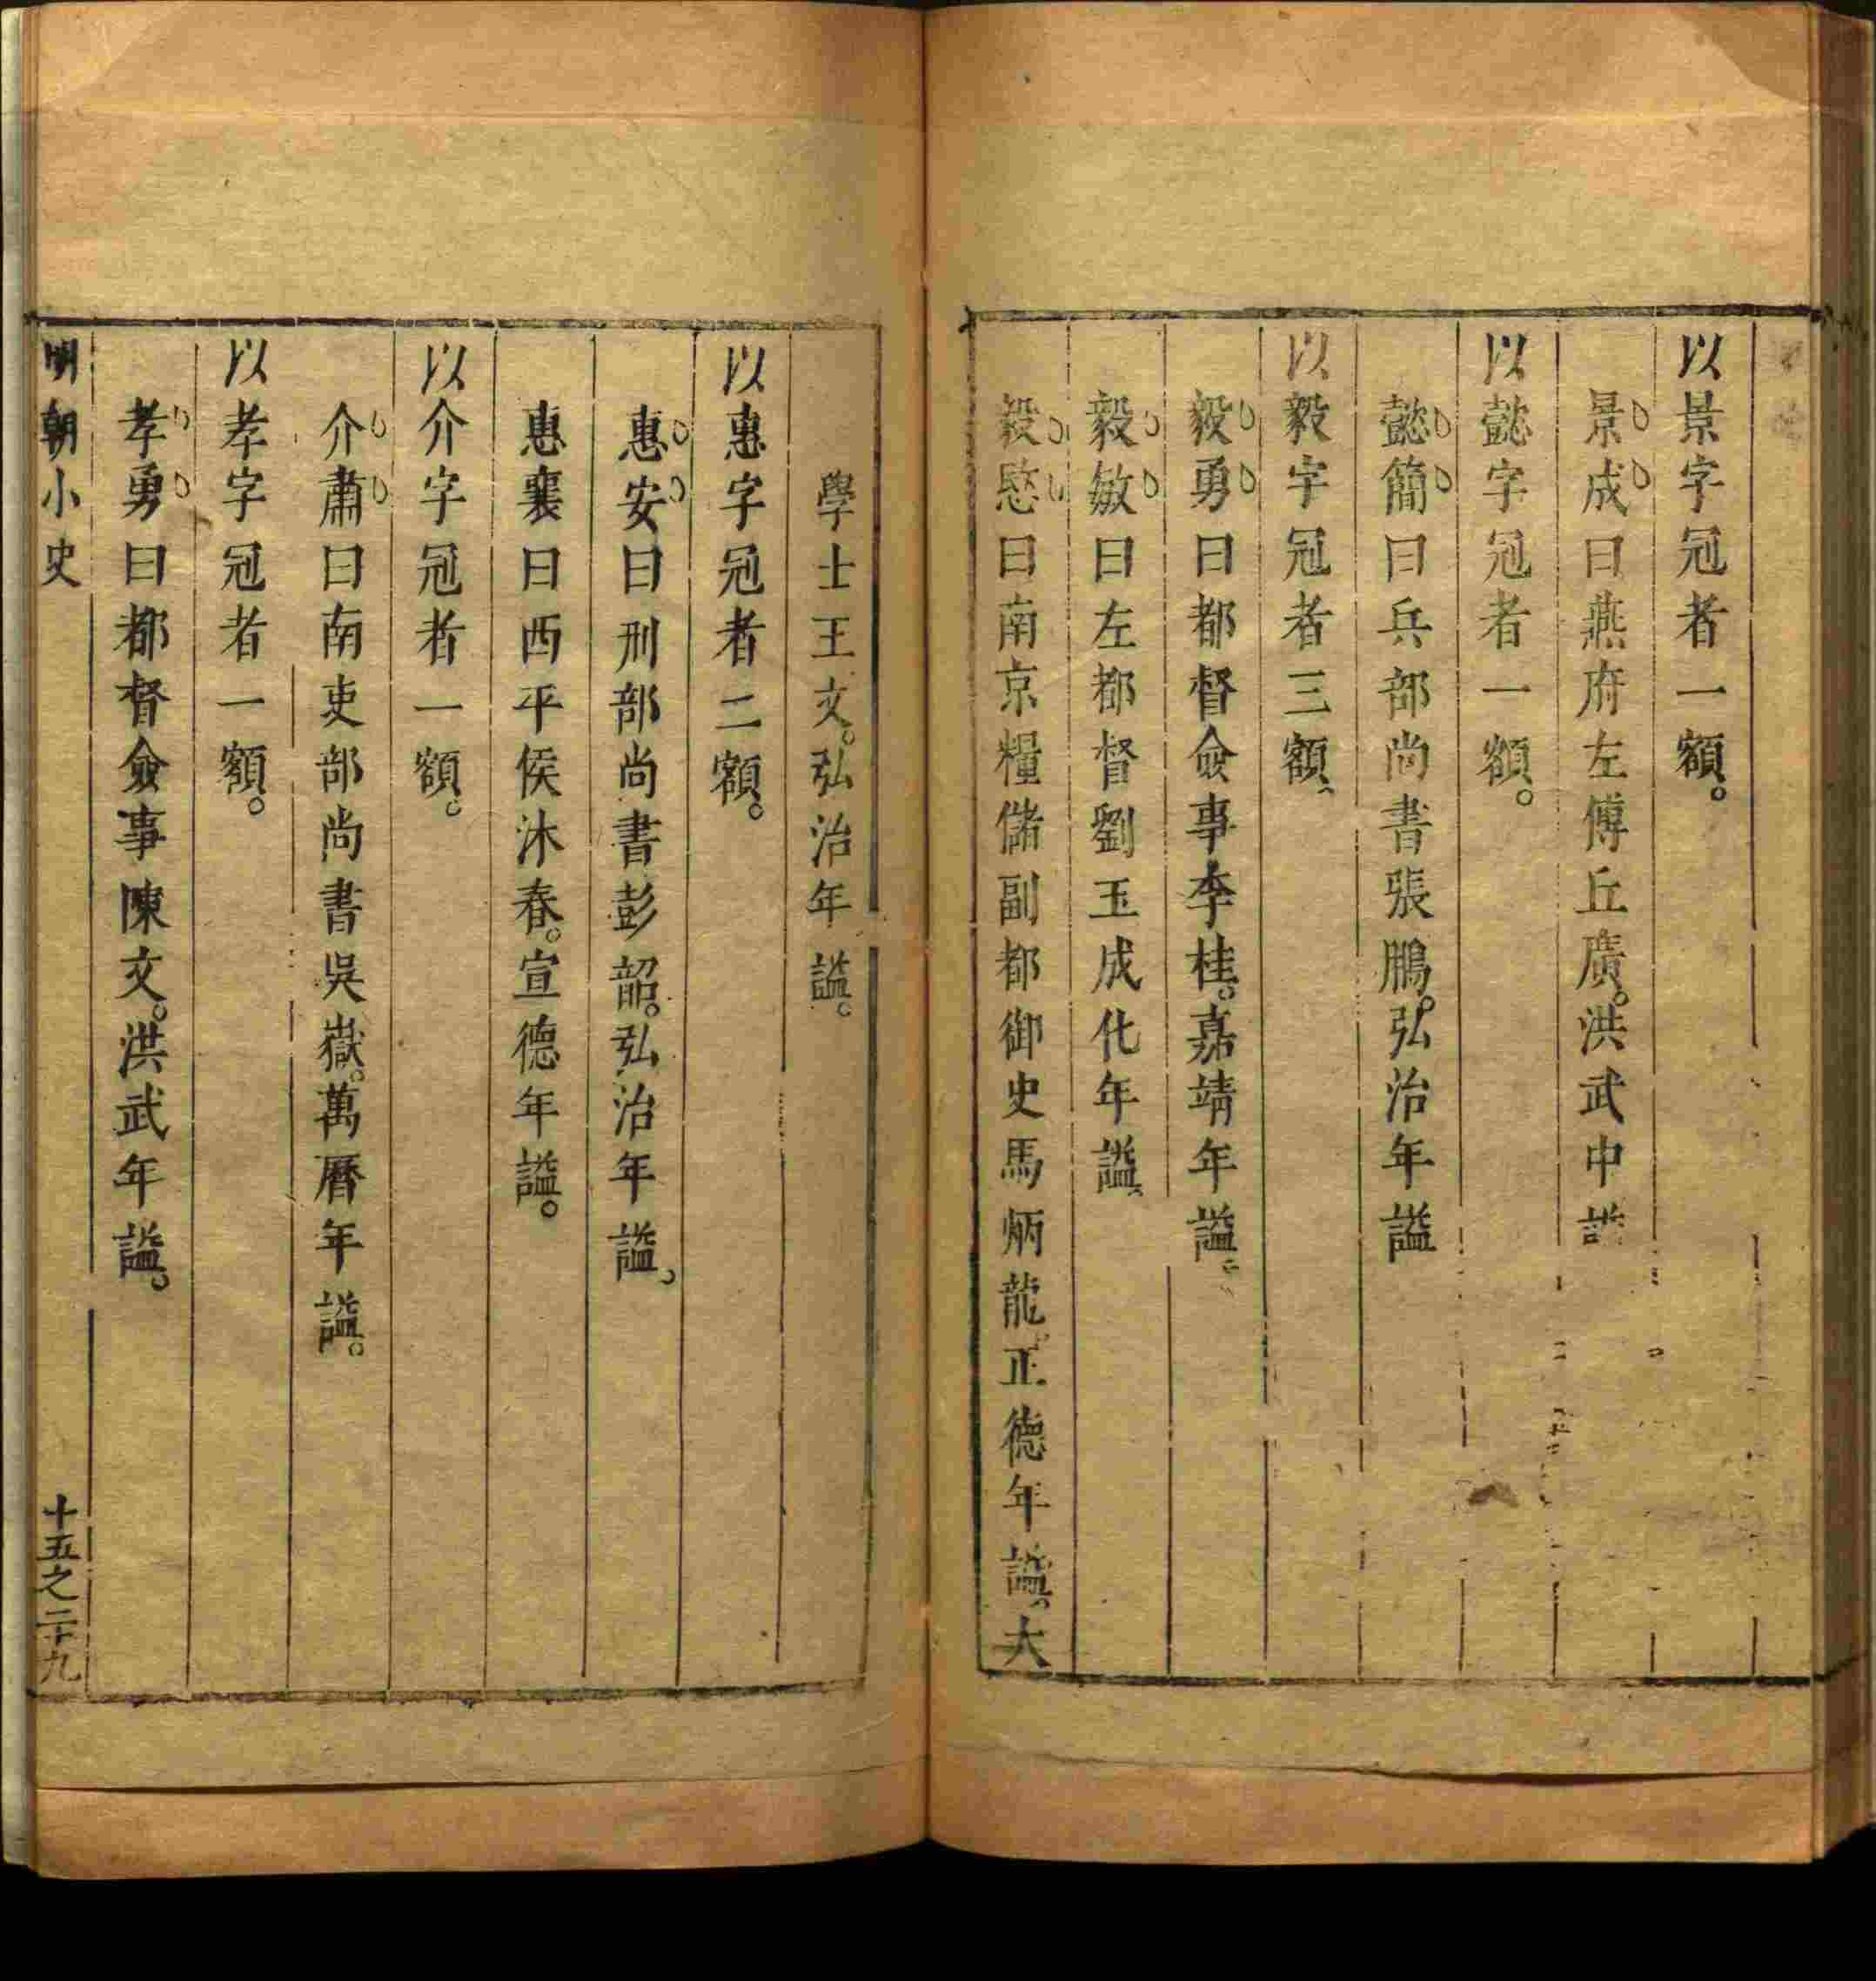 以景字冠者一額。
景成曰燕府左傅丘廣。洪武中謚
以懿字冠者一額。
懿簡曰兵部尚書張鵬。弘治年謚
以毅字冠者三額、
毅勇曰都督僉事李桂。嘉靖年謚。
毅敏曰左都督劉玉成化年謚。
毅愍曰南京糧儲副都御史馬炳龍。正德年謚。大
學士王文。弘治年謚。
以惠字冠者二額。
惠安曰刑部尚書彭韶。弘治年謚。
惠襄曰西平侯沐春。宣德年謚。
以介字冠者一額。
介肅曰南吏部尚書吳嶽。萬曆年謚。
以孝字冠者一額。
孝勇曰都督僉事陳文。洪武年謚。
明朝小史
十五之二十九